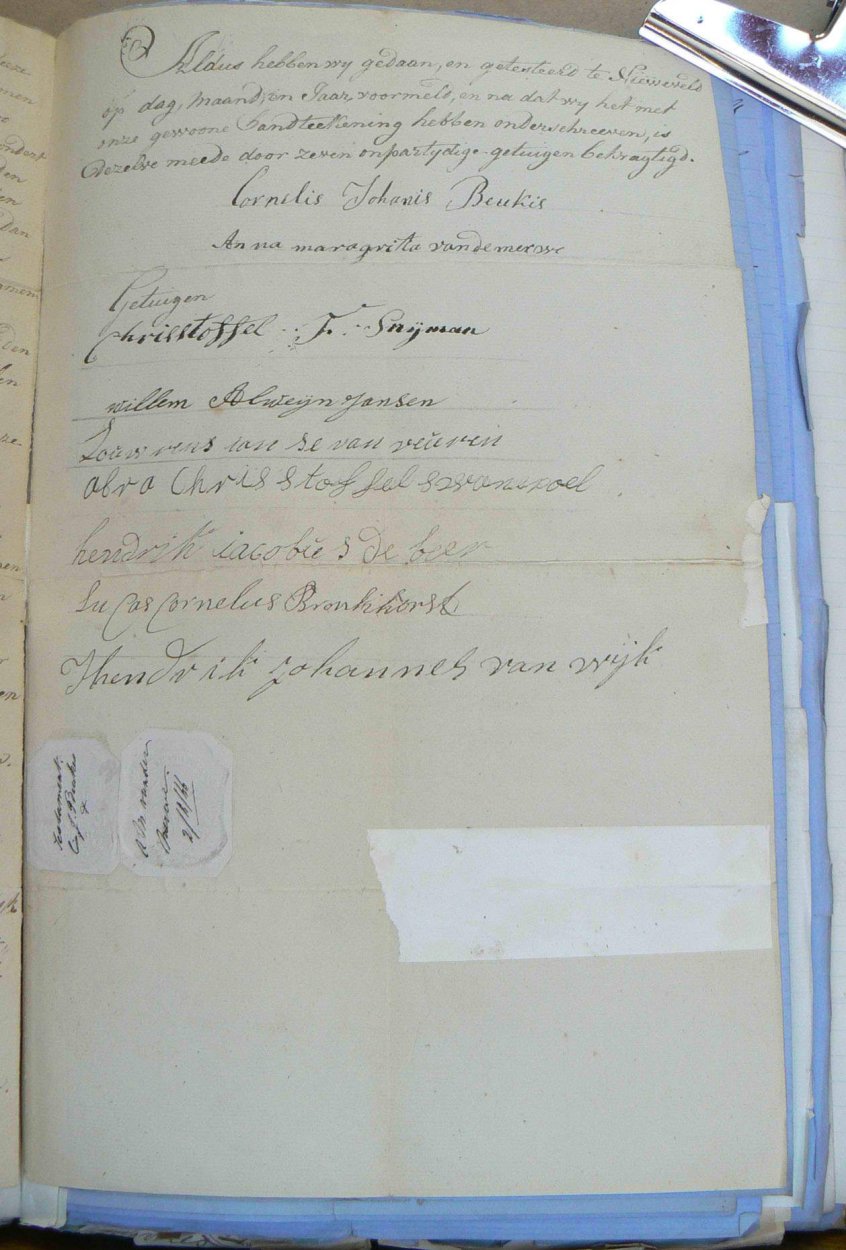 Aldus hebben wy gedaan, en getesteerd te Nieuweveld
op dag, maand, en Jaar, voormeld, en na dat wy het met
onze gewoone Handteekening hebben onderschreeven, is
dezelve meede door zeven onpartydige getuigen bekragtigd.
Cornelis Johanis Beukis
Anna maragrita vandemerwe
Getuigen
Chrisstoffel F. Snyman
willem Alweyn Jansen
Louwrens van reuwen
abra Chrisstoffel swanepoel
hendrik iacobus De beer
Lu Cas Cornelus Bronkhorst
Hendrik Johannes van wijk
Testament
&
A M vander
2/16/66